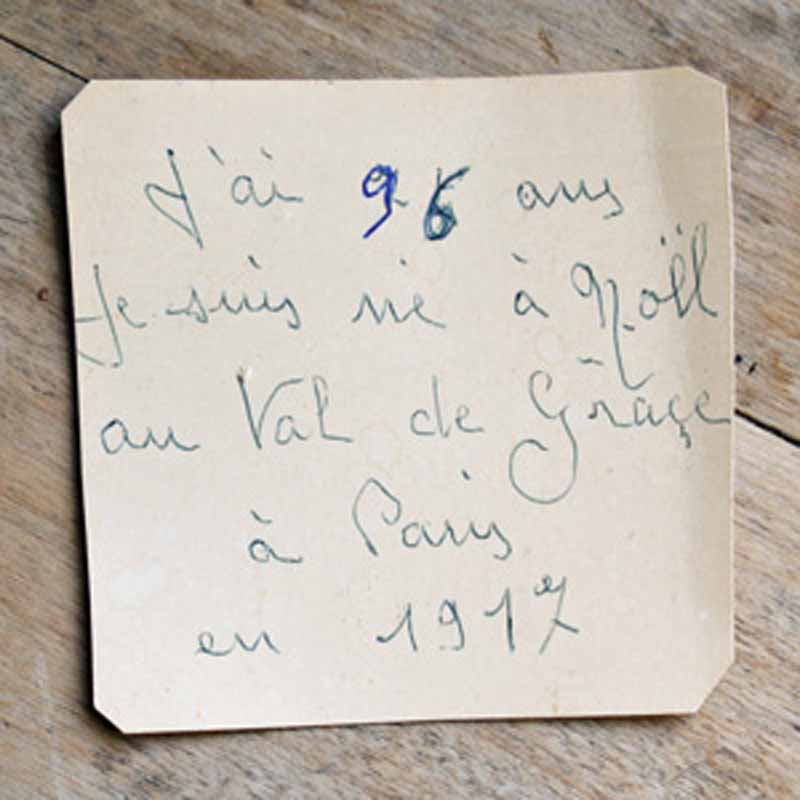 J'ai 96 ans
Je suis né à Nöll
au Val de Grâçe
à Paris
en 1917